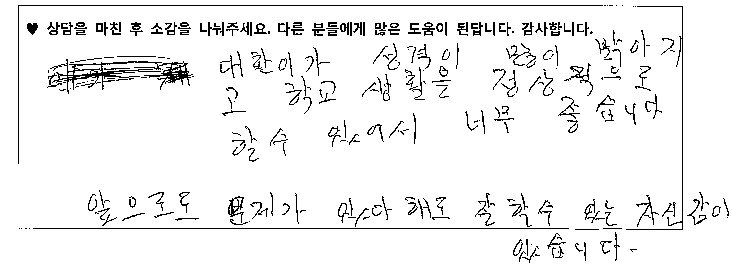 ♥ 상담을 마친 후 소감을 나눠주세요. 다른 분들에게 많은 도움이 된답니다. 감사합니다.
대한이가 성격이 많이 밝아지
고 학교 생활을 정상적으로
할수 있어서 너무 좋습니다
앞으로도 문제가 있다해도 잘할수 있는 자신감이
있습니다.